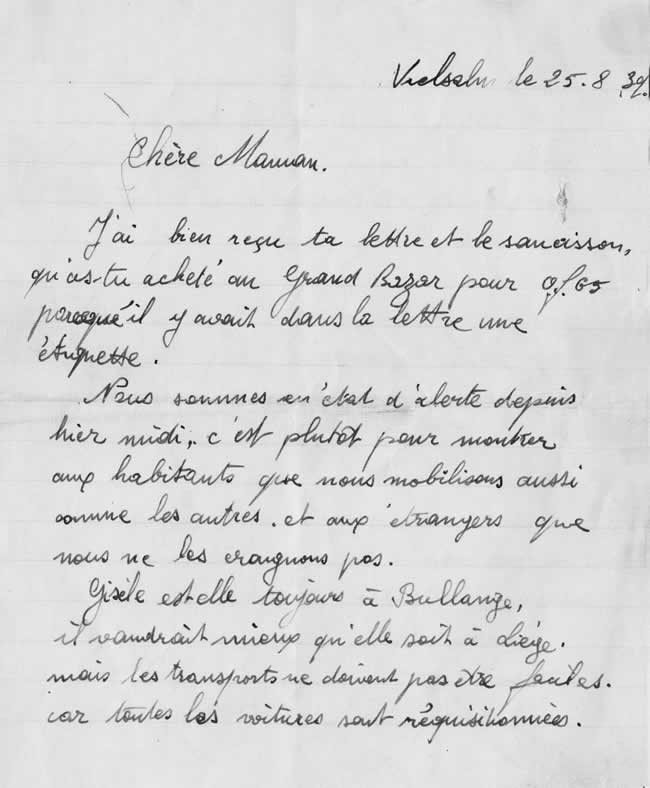 Vielsalm le 25.8.39.
Chère Maman.
J'ai bien reçu ta lettre et le saucisson,
qu'as-tu acheté au Grand Bazar pour 9f.65
parceque'il y avait dans la lettre une
étiquette.
Nous sommes en état d'alerte depuis
hier midi, c'est plutôt pour montrer
aux habitants que nous mobilisons aussi
comme les autres. et aux étrangers que
nous ne les craignons pas.
Gisèle est elle toujours à Bullange,
il vaudrait mieux qu'elle soit à Liège.
mais les transports ne doivent pas être faciles.
car toutes les voitures sont réquisitionnées.